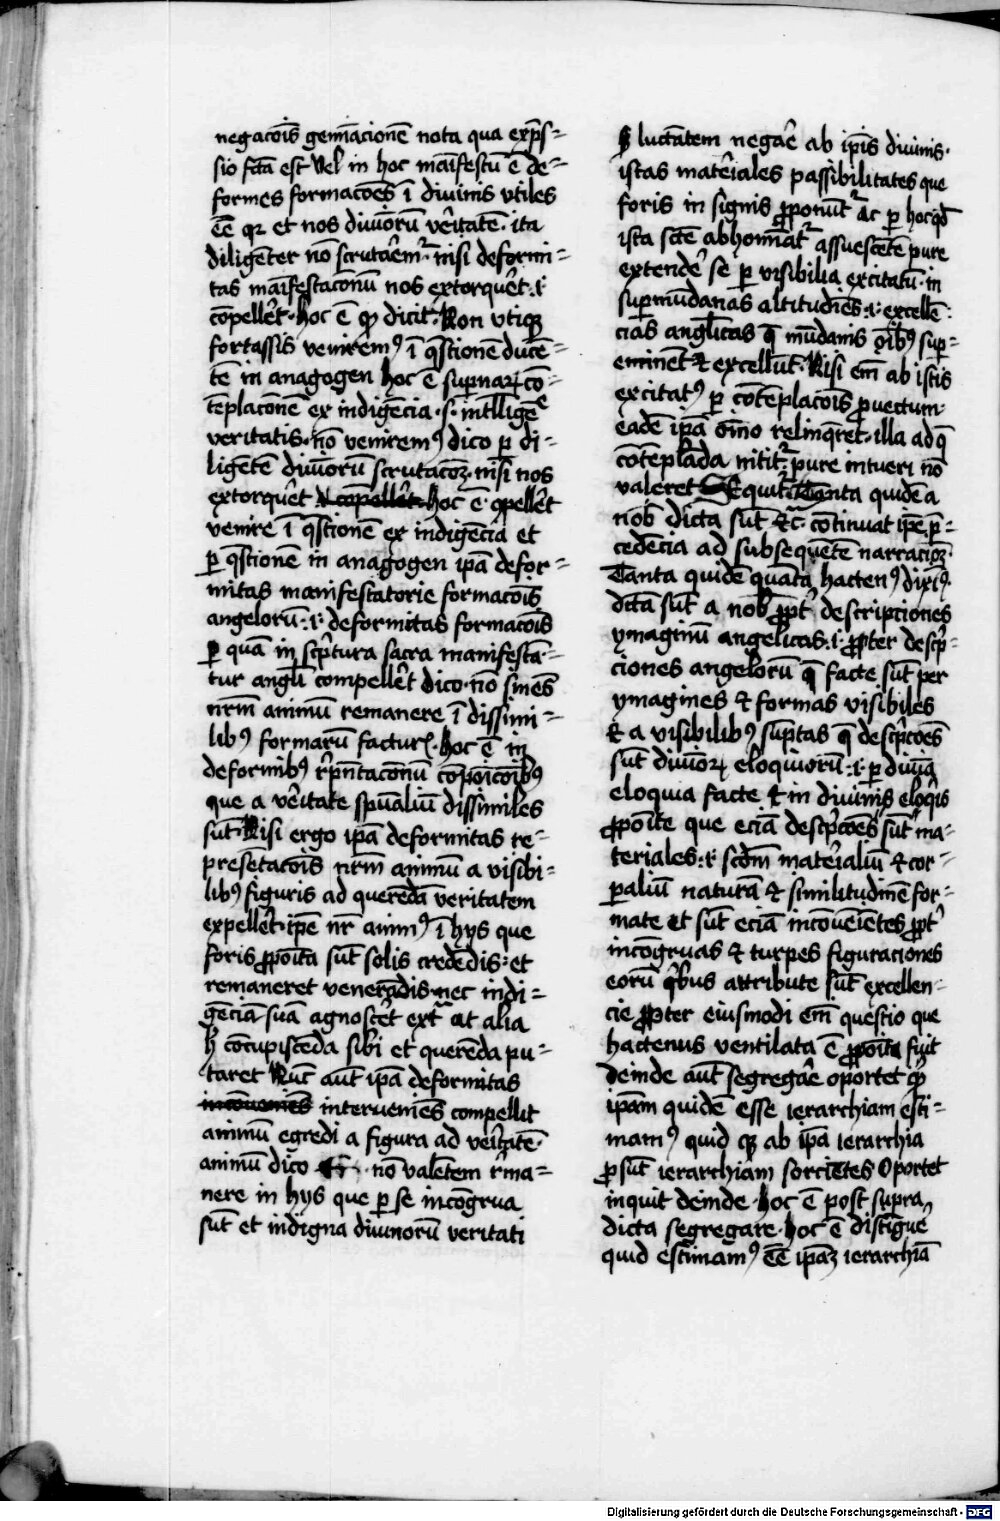 negacōis gemīacionē nota qua exp̄s=
sio fc̄ta est Vel in hoc māifestū ē de=
formes formacōes ī diuinis vtiles
ēē qꝛ et nos diuīorū vēritatē · ita
diligēter nō scrutarem᷑ nisi deformi=
tas māifestaconū nos extorquēt .i.
cōpellēt · hoc ē qd̄ dicit · Non vtiqꝫ
fortassis venirem⁹ ī q̄stionē ducē=
tē in anagogen hoc ē supnaꝝ cō=
tēplaconē ex indigēcia · s · intlligēe
veritatis · nō venirem⁹ dico ꝑ di=
ligētē diuīorū scrutacoꝫ · nisi nos
extorquēt hoc ē · ꝯpellēt
venire ī q̄stionē ex indigēcia et
ꝑ q̄stionē in anagogen ipā defor=
mitas manifestatorie formacōis
angelorū .i. deformitas formacōis
ꝑ quā in sc̄ptura sacra manifestā=
tur angli compellēt dico · nō sinēs
nr̄m animū remanere ī dissimi=
lib⁹ formarū facturꝭ · hoc ē in
deformib⁹ rp̄ntaconū cōpoicōib⁹
que a vēritate spūaliū dissimiles
sūt · Nisi ergo ipā deformitas re=
presētacōis nr̄m animū a visibi=
lib⁹ figuris ad querēdā veritatem
expellēt · ipē nr̄ anim⁹ ī hys que
foris ꝓpoita sūt solis credēdis · et
remaneret venerādis · nec indi=
gēciā suā agnoscēt ext̄ at alia
h̄ cōcupiscēda sibi et querēda pu=
taret Nūc aūt ipā deformitas
interueniēs compellit
animū egredi a figura ad vēritatē ·
animū dico · nō valētem r̄ma=
nere in hys que ꝑ se incōgrua
sūt et indigna diuinorū veritati
luctātem negāe ab ipīs diuinis ·
istas matēiales passibilitates que
foris in signis ꝓponūt᷑ Ac ꝑ hoc qd̄
ista sc̄te abhomīat᷑ assuescētē pure
extendē se ꝑ visibilia excitatū · in
suꝑmūdanas altitudiēs .i. excellē=
cias anglicas q̄ mūdanis oīb⁹ suꝑ=
eminet ⁊ excellūt · Nisi em̄ ab istis
excitat⁹ ꝑ cōtēplacōis ꝓuectum
eadē ipā oīno relinq̄ret · illa ad q̄
cōtēplāda nitit᷑ pure intueri nō
valeret Sequit᷑ Tanta quidē a
nob̄ dicta sūt ⁊c̄ · cōtinuat ipē p̄=
cedēcia ad subsequētē narracioꝫ
Tanta quidē quāta hacten⁹ dixi⁹
dc̄ta sūt a nob̄ ꝓpt᷑ descripciones
ymaginū angelicas .i. ꝓpter descp̄=
ciones angelorū q̄ facte sūt per
ymagines ⁊ formas visibiles
⁊ a visibilib⁹ sūptas q̄ descp̄cōes
sūt diuīoꝝ eloquiorū .i. ꝑ diuīa
eloquia facte ⁊ in diuinis eloq̄is
ꝓpoite que eciā descp̄cōes sūt ma=
teriales .i. scdm̄ matēialiū ⁊ cor=
ꝑaliū naturā ⁊ similitudinē for=
mate et sūt eciā incōueiētes ꝓpt᷑
incōgruas ⁊ turpes figuraciones
eorū q̄bus attribute sūt excellen=
cie ꝓpter eiusmodi em̄ questio que
hactenus ventilata ē ꝓpoita fuit
deinde aūt segregāe oportet qd̄
ipām quidē esse ierarchiam esti=
mam⁹ quid qꝫ ab ipā ierarchia
ꝓsūt ierarchiam sorciētes Oportet
inquit deinde · hoc ē post supra
dicta segregare · hoc ē distīguē
quid estimam⁹ ēē ipaꝫ ierarchiā
Digitalisierung gefördert durch die Deutsche Forschungsgemeinschaft - DFG